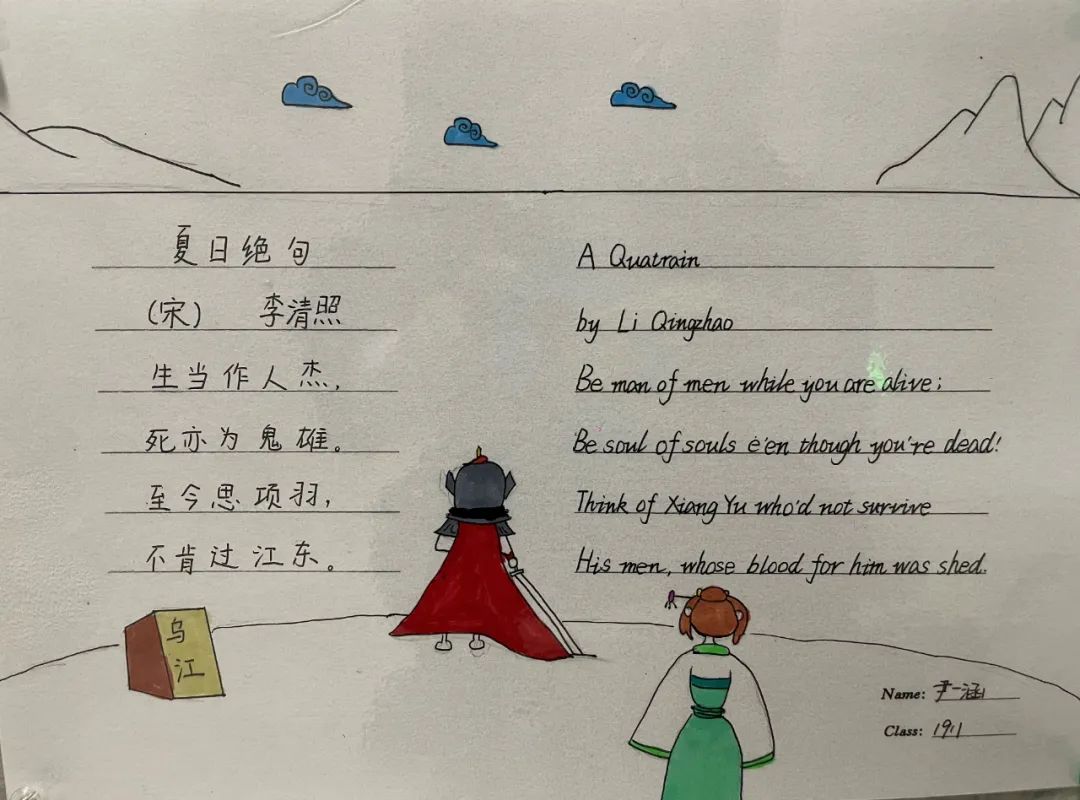 夏日绝句
(宋) 李清照
生当作人杰,
死亦为鬼雄。
至今思项羽,
不肯过江东。
A Quatrain
by Li Qingzhao
Be man of men while you are alive;
Be soul of souls e'en though you're dead!
Think of Xiang Yu who'd not survive
His men, whose blood for him was shed.
乌
江
Name: 尹一涵
Class: 1911